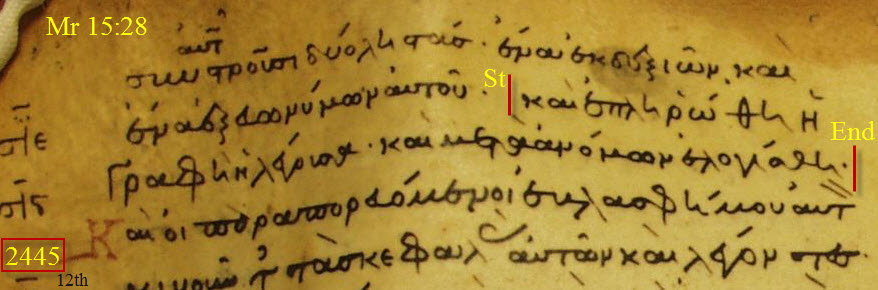 Mr 15:28
σταυροῦσι δύο ληστάς· ἕνα ἐκ δεξιῶν καὶ
ἕνα ἐξ εὐωνύμων αὐτοῦ· St καὶ ἐπληρώθη ἡ
γραφὴ ἡ λέγουσα· καὶ μετὰ ἀνόμων ἐλογίσθη· End
Καὶ οἱ παραπορευόμενοι ἐβλασφήμουν αὐτ
τὰς κεφαλ αὐτῶν καὶ λέγοντες
2445
12th